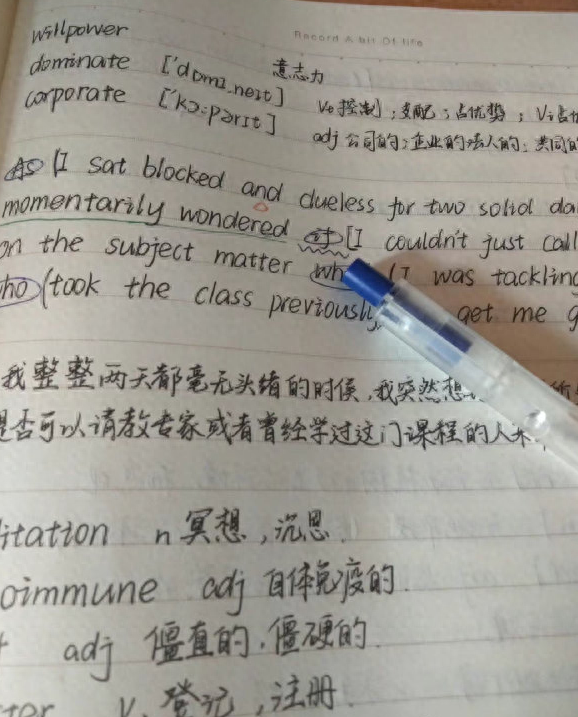 Record A bit Of life
willpower 意志力
dominate ['dɒmɪ.neɪt] Vt 控制;支配;占优势; Vi 占
corporate ['kɔ:pərɪt] adj 公司的;企业的;法人的;共同的
As (I sat blocked and clueless for two solid da
momentarily wondered if [I couldn't just call
on the subject matter (I was tackling
who (took the class previously get me
我整整两天都毫无头绪的时候,我突然想
是否可以请教专家或者曾经学过这门课程的人来
itation n 冥想,沉思.
oimmune adj 自体免疫的.
adj 僵直的,僵硬的.
ter V. 登记,注册.